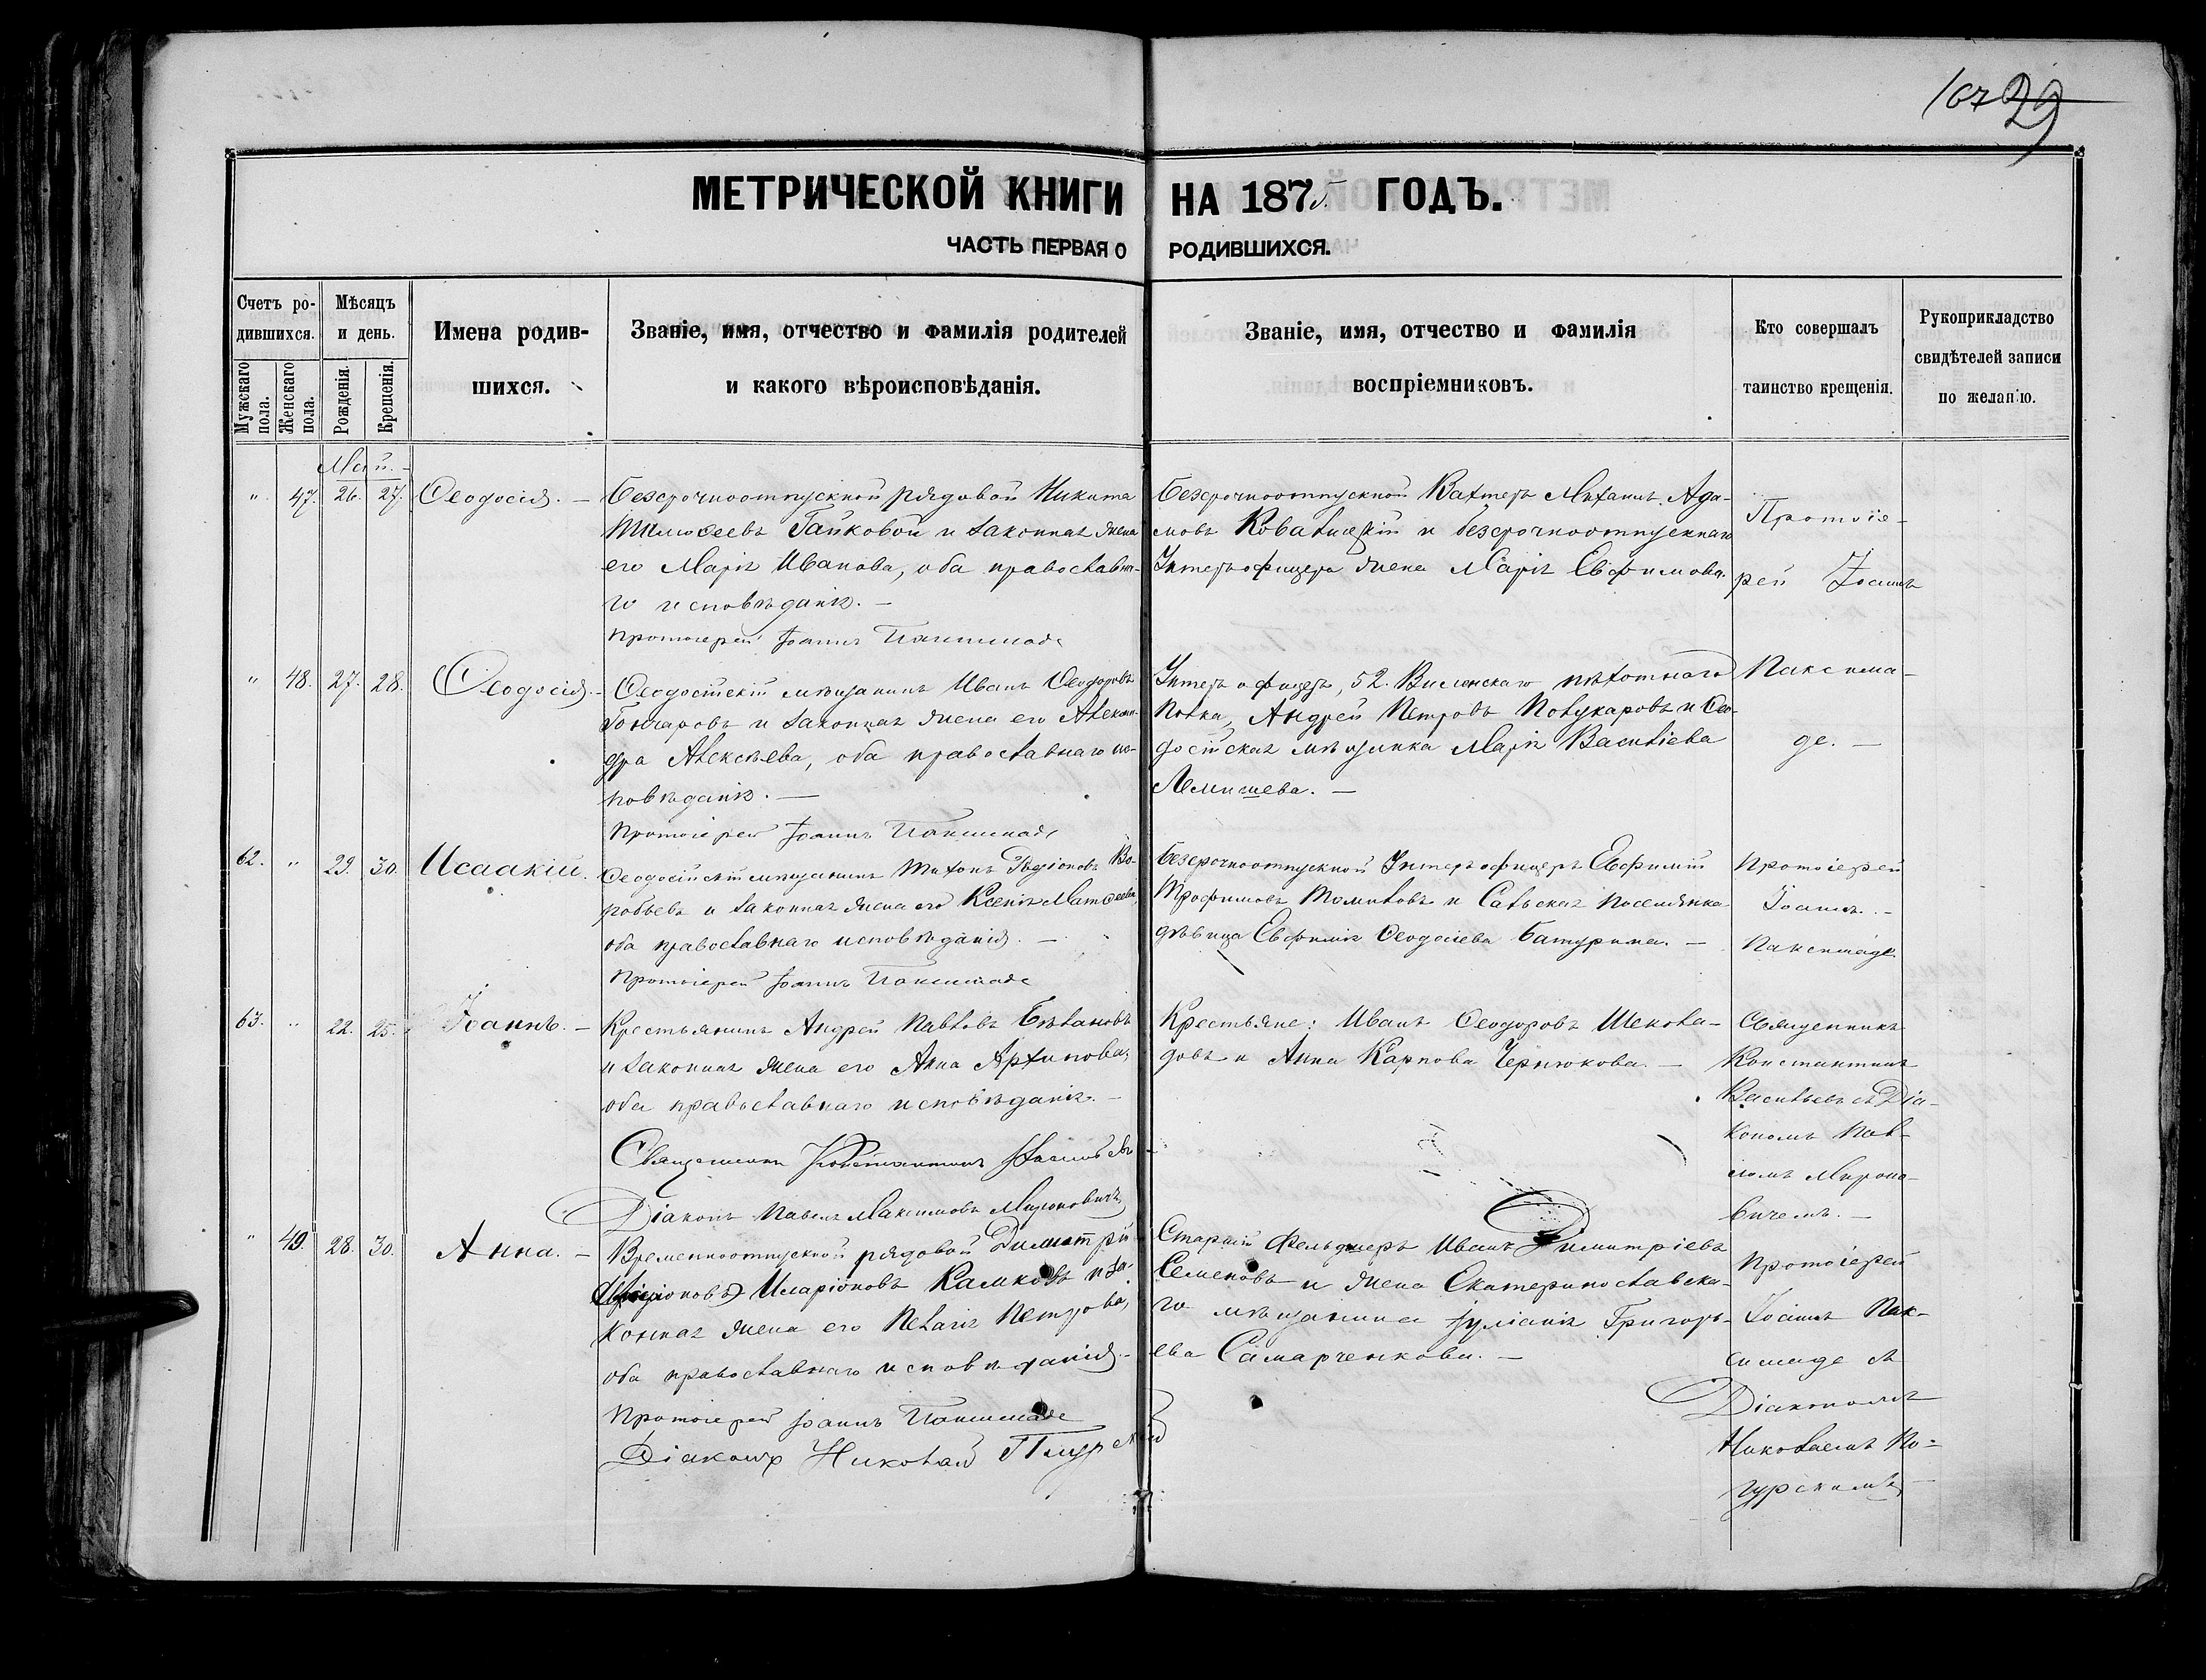 107 29
МЕТРИЧЕСКОЙ КНИГИ НА 1875. ГОДЪ.
ЧАСТЬ ПЕРВАЯ О РОДИВШИХСЯ.
Счетъ ро-
дившихся.
Мужскаго пола.
Женскаго пола.
Мѣсяцъ
и день.
Рожденія.
Крещенія.
Имена родив-
шихся.
Званіе, имя, отчество и фамилія родителей
и какого вѣроисповѣданія.
Званіе, имя, отчество и фамилія
воспріемниковъ.
Кто совершалъ
таинство крещенія.
Рукоприкладство
свидѣтелей записи
по желанію.
Май.
" 47. 26. 27. Ѳеодосія. —
Безсрочноотпускной рядовой Никита
Тимоѳеевъ Гайковой и законная жена
его Марія Иванова, оба православна-
го исповѣданія. —
Протоіерей Іоаннъ Паксимаде
Безсрочноотпускной Вахтеръ Михаилъ Ада-
мовъ и безсрочноотпускнаго
Унтеръ офицера жена Марія Евфимова.
Протоіе-
рей Іоаннъ
" 48. 27. 28. Ѳеодосія. —
Ѳеодосійскій мѣщанинъ Иванъ Ѳеодоровъ
Гончаровъ и законная жена его Алексан-
дра Алексѣева, оба православнаго ис-
повѣданія. —
Протоіерей Іоаннъ Паксимаде
Унтеръ офицеръ, 52. Виленскаго пѣхотнаго
полка, Андрей Петровъ Полукаровъ и Ѳео-
досійская мѣщанка Марія Васильева
Лемишева. —
Паксима-
де. —
62. " 29. 30. Исаакій.
Ѳеодосійскій мѣщанинъ Тихонъ Родіоновъ Во-
робьевъ и законная жена его Ксенія Матѳеева,
оба православнаго исповѣданія. —
Протоіерей Іоаннъ Паксимаде
Безсрочноотпускной Унтеръ офицеръ Евфимій
Трофимовъ Томиловъ и Сальская поселянка
дѣвица Евфимія Ѳеодосіева Батурина. —
Протоіерей
Іоаннъ. —
Паксимаде.
63. " 22. 25. Іоаннъ. —
Крестьянинъ Андрей Павловъ Бѣлановъ
и законная жена его Анна Архипова,
оба православнаго исповѣданія. —
Священникъ Константинъ Васильевъ
Діаконъ Павелъ Максимовъ Мироновичъ
Крестьяне: Иванъ Ѳеодоровъ Шекола-
довъ и Анна Карпова Чернюкова. —
Священникъ
Константинъ
Васильевъ съ Діа-
кономъ Пав-
ломъ Мироно-
вичемъ. —
" 49. 28. 30. Анна. —
Временноотпускной рядовой Димитрій
Иларіоновъ Калмковъ и за-
конная жена его Пелагія Петрова,
оба православнаго исповѣданія. —
Протоіерей Іоаннъ Паксимаде
Діаконъ Николай
Старшій Фельдшеръ Иванъ Димитріевъ
Семеновъ и жена Екатеринославска-
го мѣщанина Іуліанія Григорь-
ева Самарченкова. —
Протоіерей
Іоаннъ Пак-
симаде съ
Діакономъ
Николаемъ По-
гурскимъ —